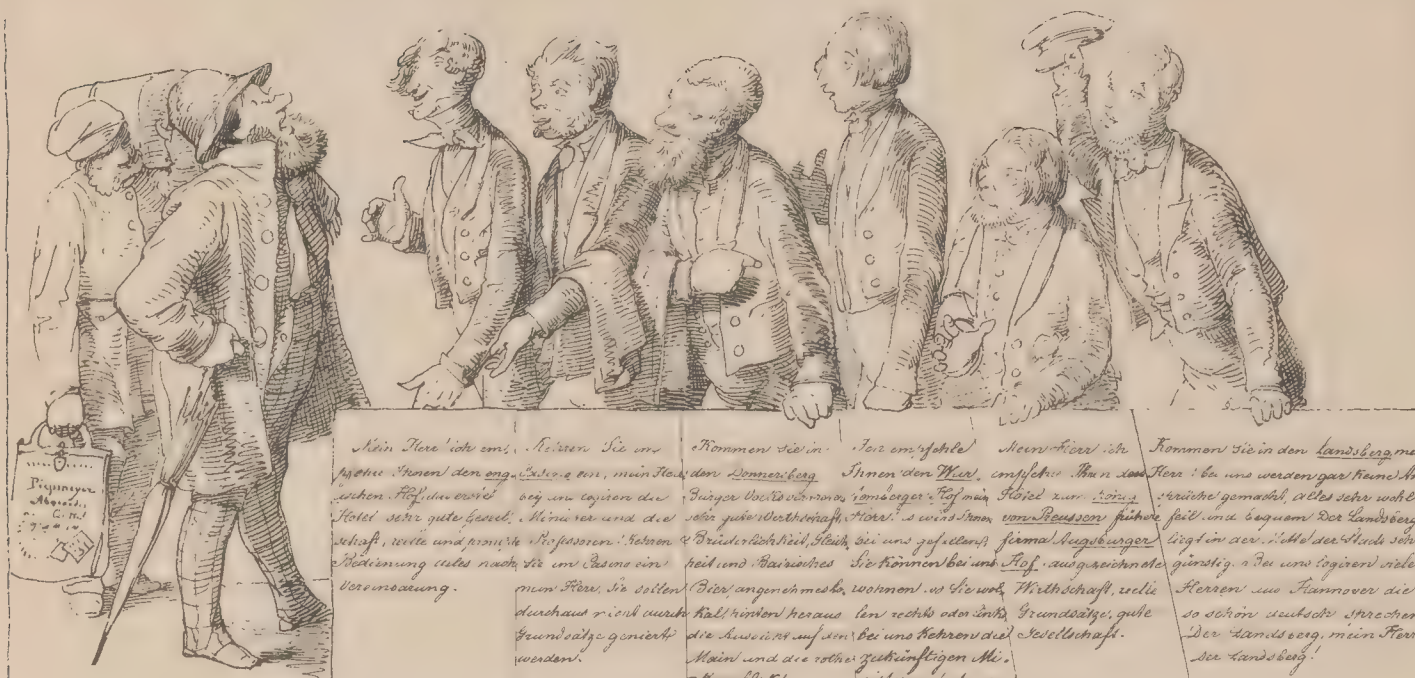 Piepmeyer
Mein Herr ich em,
Ihnen den eng
schen Hof, die erste
Hotel sehr gute Gesell,
schaft, reelle und prompte
Bedienung alles nach
Vereinbarung.
Kehren Sie im
Casino ein, mein Herr
bei uns logiren die
Minister und die
Professoren! Kehren
Sie im Casino ein
mein Herr, Sie sollen
durchaus nicht durch
Grundsätze geniert
werden.
Kommen Sie in
den Donnersberg
Bürger
sehr gute Wirthschaft,
Brüderlichkeit, Gleich,
heit und Bairisches
Bier angenehmstes
hinten heraus
die Aussicht auf den
Main und die rothe
Ich empfehle
Ihnen den Wür,
temberger Hof mein
Herr. es wird Ihnen
bei uns gefallen,
Sie können bei uns
wohnen wo Sie wol,
len rechts oder links
bei uns kehren die
zukünftigen Mi,
Mein Herr ich
empfehle Ihnen das
Hotel zum König
von Preussen frühere
firma Augsburger
Hof ausgezeichnete
Wirthschaft, reelle
Grundsätze, gute
Gesellschaft.
Kommen Sie in den Landsberg, me
Herr! bei uns werden gar keine An
sprüche gemacht, alles sehr wohl
feil und bequem Der Landsberg
liegt in der Mitte der Stadt sehr
günstig. Bei uns logiren viele
Herren aus Hannover die
so schön deutsch sprechen
Der Landsberg, mein Herr
der Landsberg!